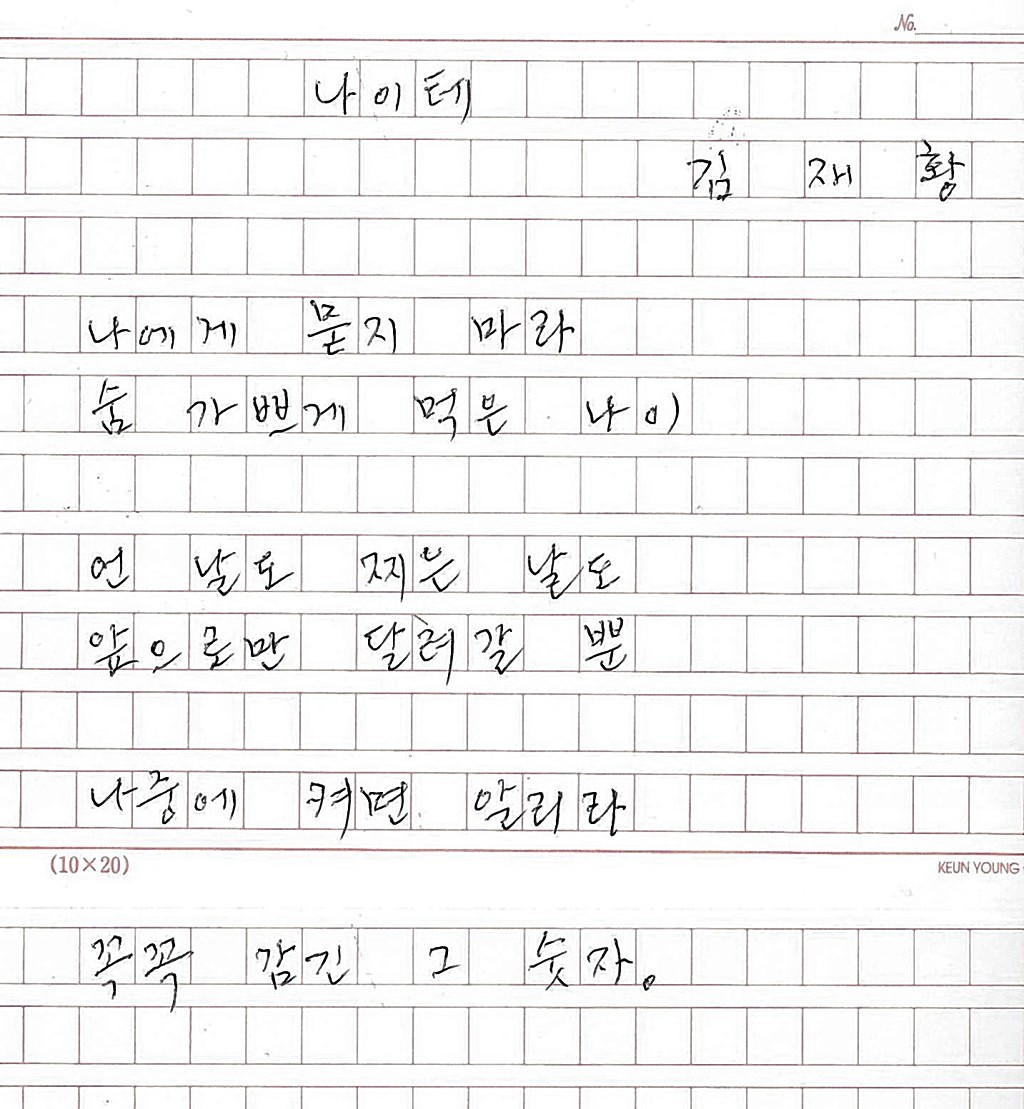 No.
나이테
김 재 황
나에게 묻지 마라
숨 가쁘게 먹은 나이
언 날도 찌은 날도
앞으로만 달려갈 뿐
나중에 켜면 알리라
(10×20)
KEUN YOUNG
꼭꼭 감긴 그 숫자。